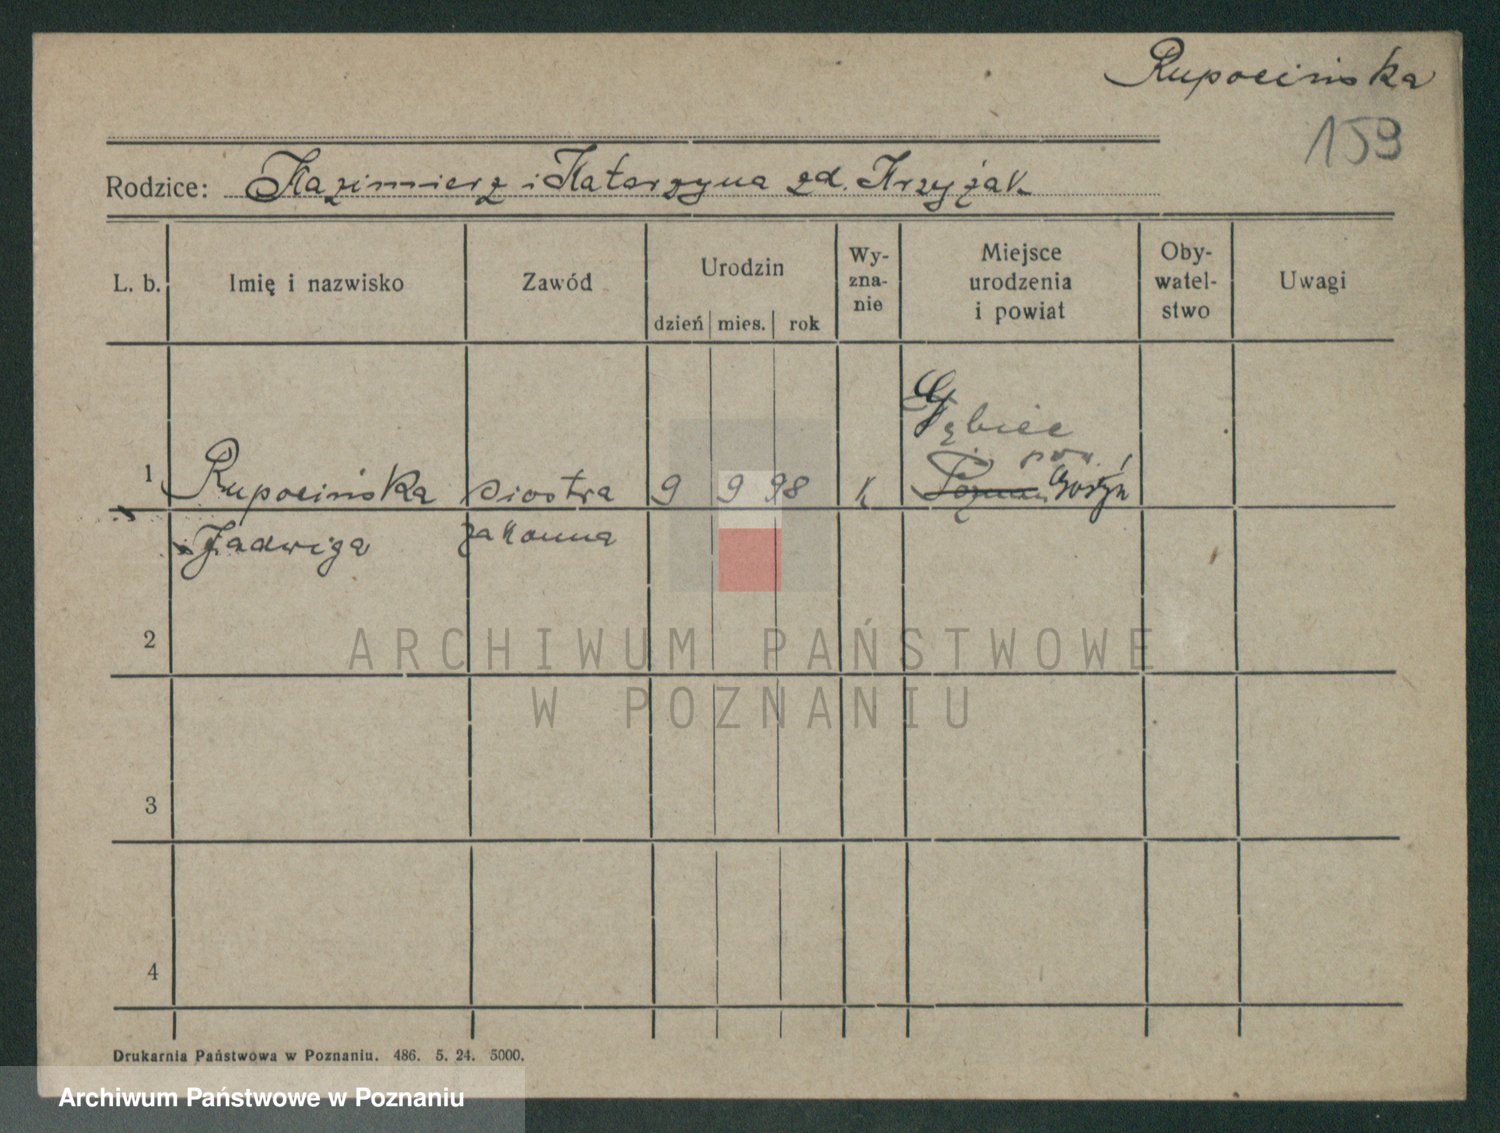 Rupocińska
159
Rodzice: Kazimierz i Katarzyna zd. Krzyżak
L. b.
Imię i nazwisko
Zawód
Urodzin
dzień
mies.
rok
Wy-
zna-
nie
Miejsce
urodzenia
i powiat
Oby-
watel-
stwo
Uwagi
1
Rupocińska
Jadwiga
siostra
zakonna
9
9
98
k
Gębice
pow.
Gostyń
2
3
4
ARCHIWUM PAŃSTWOWE
W POZNANIU
Drukarnia Państwowa w Poznaniu. 486. 5. 24. 5000.
Archiwum Państwowe w Poznaniu